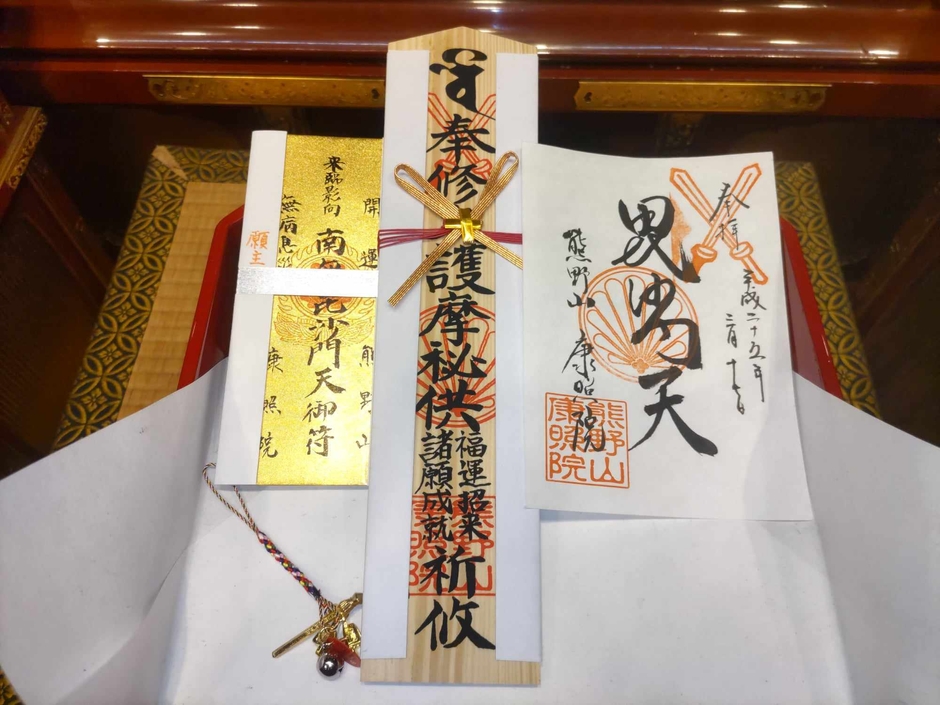 開運
熊野山
来臨影向
南無毘沙門天御符
無病息災
康照院
願主
奉修護摩秘供
福運招来
諸願成就
祈攸
熊野山
康照院
奉拝
平成二十五年
毘沙門天
熊野山 康照院
熊野山
康照院